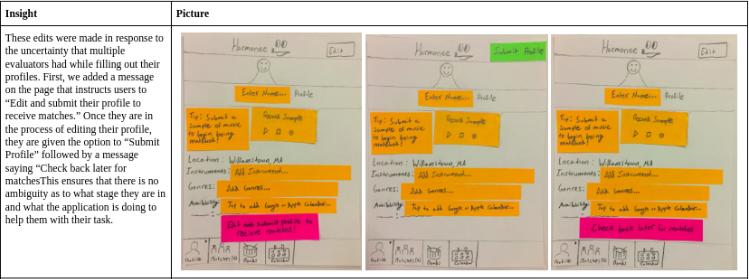 Insight
Picture
These edits were made in response to
the uncertainty that multiple
evaluators had while filling out their
profiles. First, we added a message
on the page that instructs users to
“Edit and submit their profile to
receive matches.” Once they are in
the process of editing their profile,
they are given the option to “Submit
Profile” followed by a message
saying “Check back later for
matchesThis ensures that there is no
ambiguity as to what stage they are in
and what the application is doing to
help them with their task.
Harmonise
Edit
Enter Name... Profile
Tip: Submit a
sample of music
to begin being
matched!
Record Sample
Location: Williamstown, MA
Instruments: Add Instrument...
Genres: Add Genres...
Availability: Tap to add Google or Apple Calendar...
Edit and submit profile to
receive matches!
Profile
Matches
Bands
Calendar
Harmonise
Submit Profile
Enter Name... Profile
Tip: Submit a
sample of music
to begin being
matched!
Record Sample
Location: Williamstown, MA
Instruments: Add Instrument...
Genres: Add Genres...
Availability: Tap to add Google or Apple Calendar...
Profile
Matches
Bands
Calendar
Harmonise
Edit
Enter Name... Profile
Tip: Submit a
sample of music
to begin being
matched!
Record Sample
Location: Williamstown, MA
Instruments: Add Instrument...
Genres: Add Genres...
Availability: Tap to add Google or Apple Calendar...
Check back later for matches
Profile
Matches
Bands
Calendar